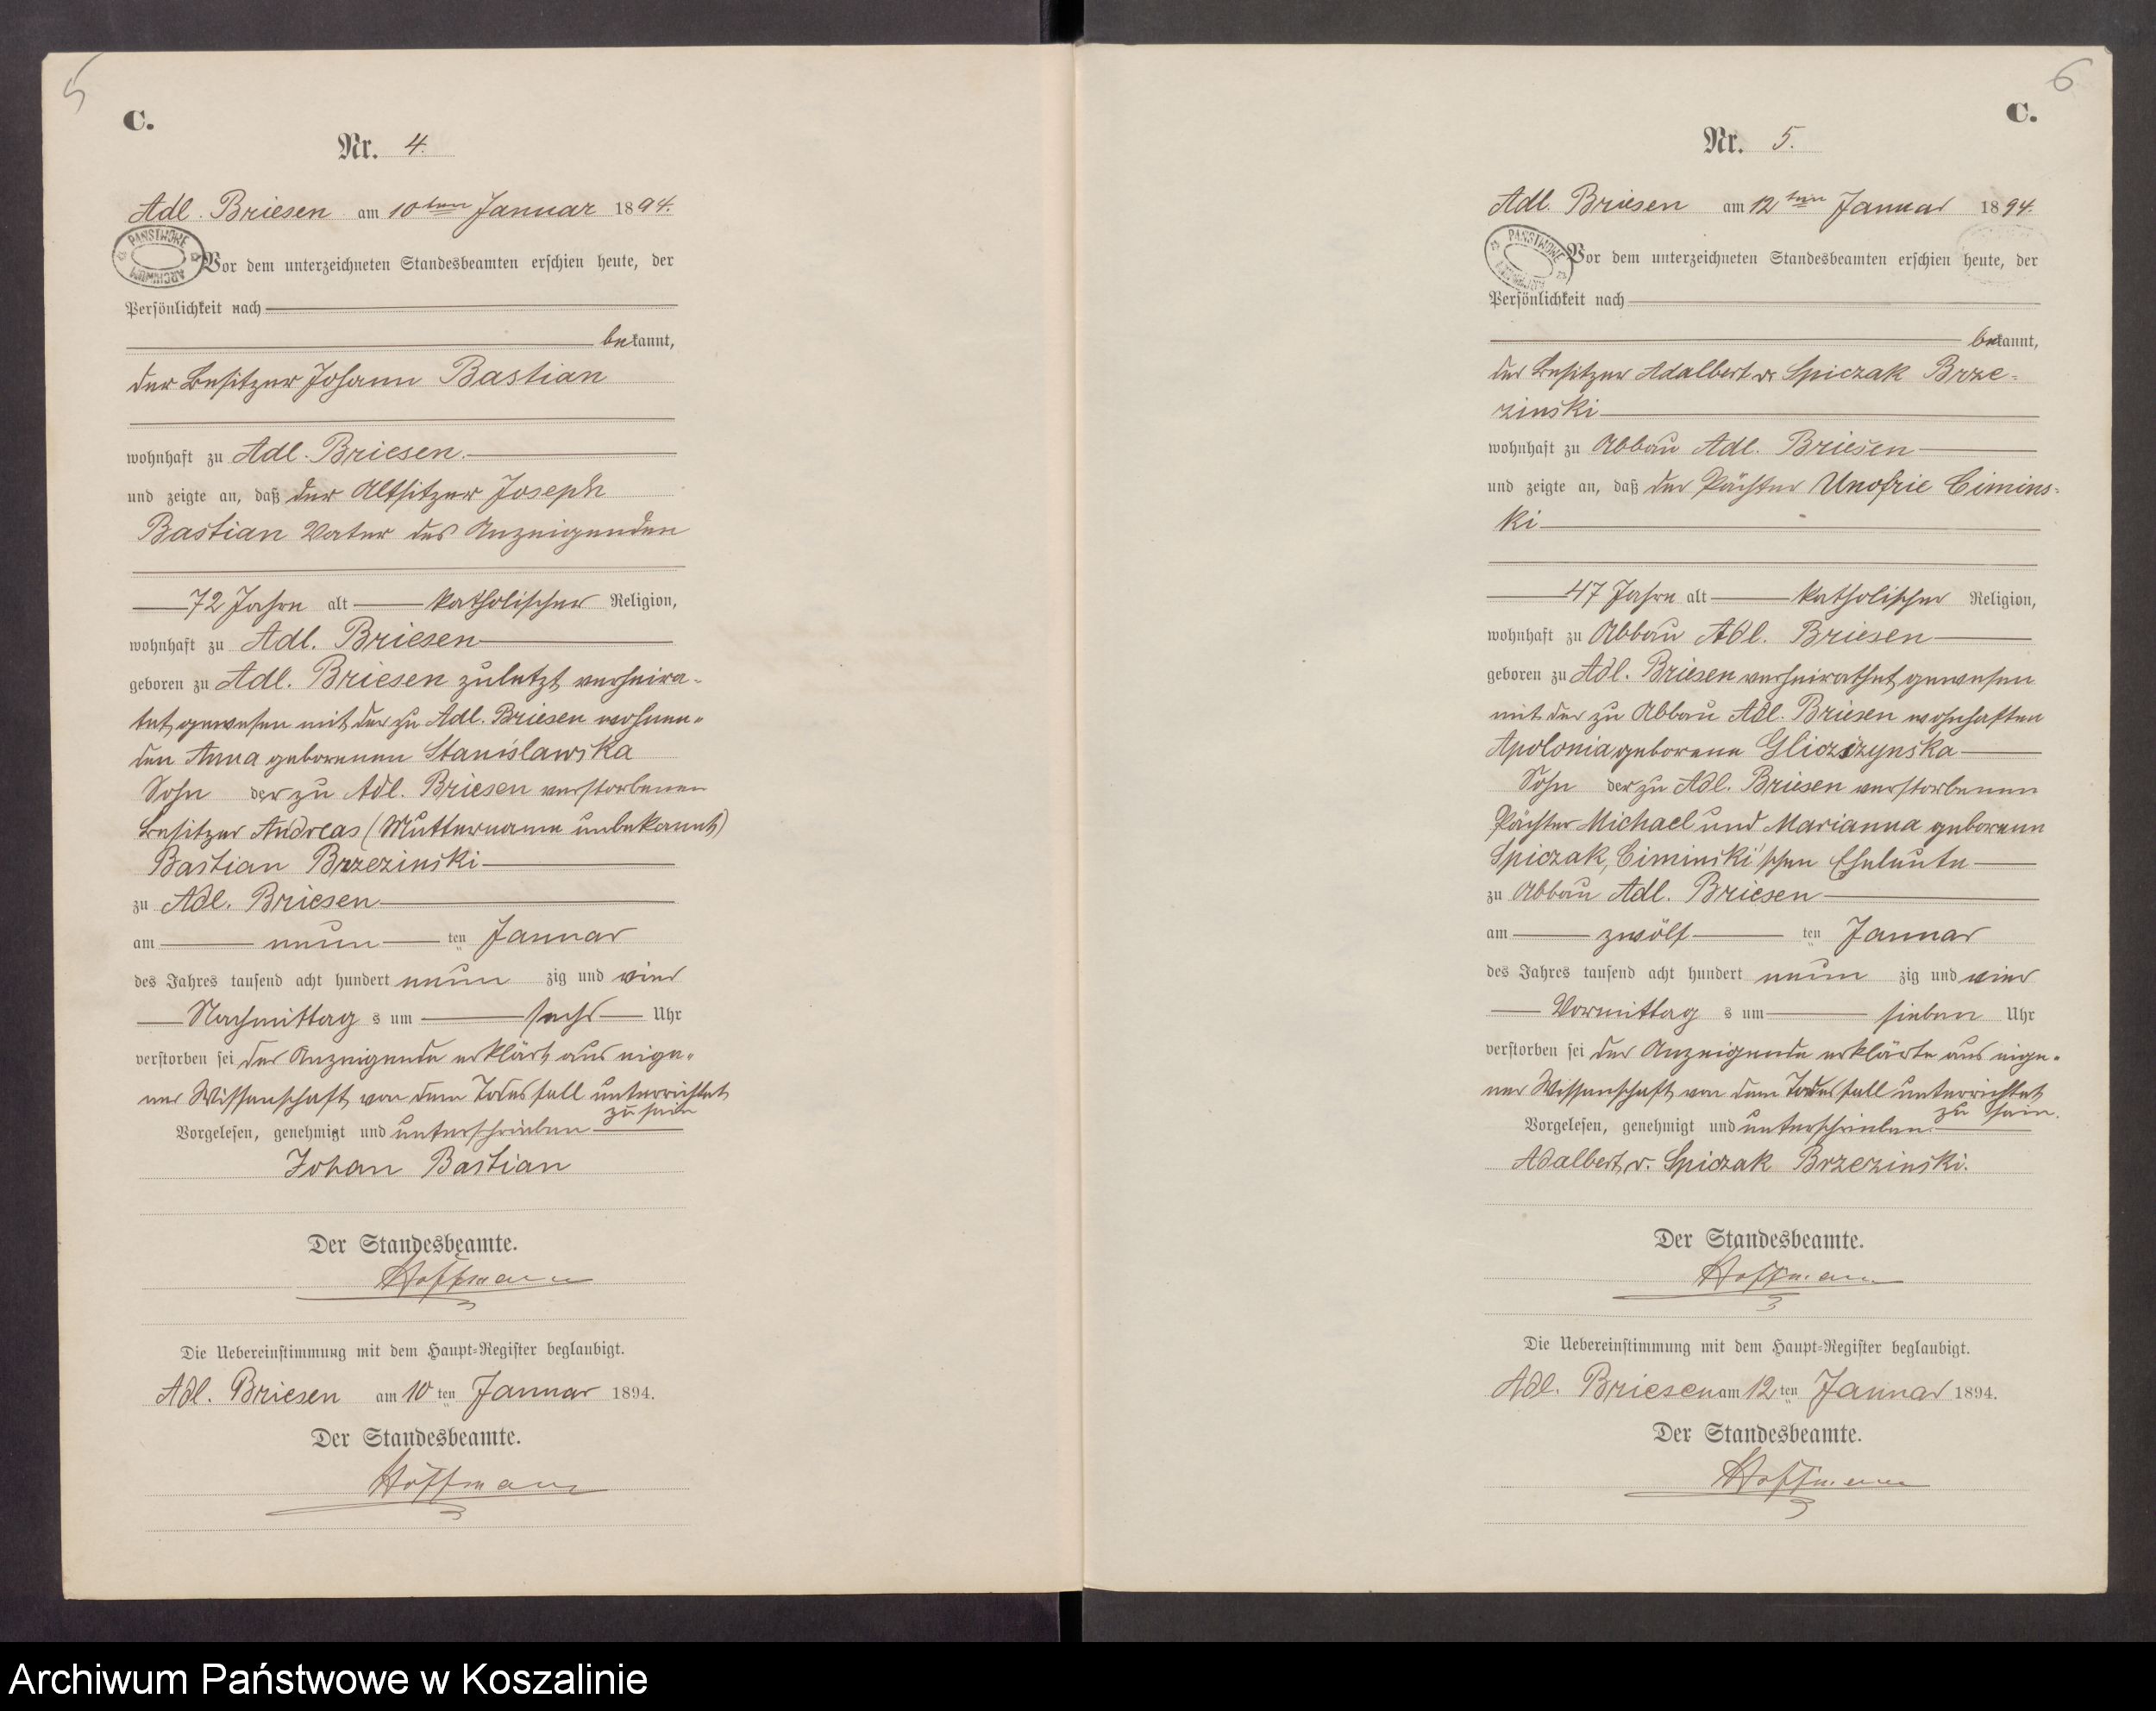 5
C.
Nr. 4.
Adl. Briesen am 10ten Januar 1894.
PAŃSTWOWE ARCHIWUM
Vor dem unterzeichneten Standesbeamten erschien heute, der
Persönlichkeit nach
bekannt,
der Besitzer Johann Bastian
wohnhaft zu Adl. Briesen.
und zeigte an, daß der Altsitzer Joseph
Bastian Vater des Anzeigenden
72 Jahre alt katholischer Religion,
wohnhaft zu Adl. Briesen
geboren zu Adl. Briesen zuletzt verheira-
tet gewesen mit der zu Adl. Briesen wohnen-
den Anna geborenen Stanislawska
Sohn der zu Adl. Briesen verstorbenen
Besitzer Andreas (Muttername unbekannt)
Bastian Brzezinski
zu Adl. Briesen
am neun ten Januar
des Jahres tausend acht hundert neun zig und vier
Nachmittag s um sechs Uhr
verstorben sei der Anzeigende erklärt aus eige-
ner Wissenschaft von dem Todesfall unterrichtet
zu sein
Vorgelesen, genehmigt und unterschrieben
Johan Bastian
Der Standesbeamte.
Hoffmann
Die Uebereinstimmung mit dem Haupt-Register beglaubigt.
Adl. Briesen am 10 ten Januar 1894.
Der Standesbeamte.
Hoffmann
6
C.
Nr. 5.
Adl. Briesen am 12ten Januar 1894.
PAŃSTWOWE ARCHIWUM
Vor dem unterzeichneten Standesbeamten erschien heute, der
Persönlichkeit nach
bekannt,
der Besitzer Adalbert v. Spiczak Brze-
zinski
wohnhaft zu Abbau Adl. Briesen
und zeigte an, daß der Pächter Unofrie Cimins-
ki
47 Jahre alt katholischer Religion,
wohnhaft zu Abbau Adl. Briesen
geboren zu Adl. Briesen verheirathet gewesen
mit der zu Abbau Adl. Briesen wohnhaften
Apolonia geborene Gliszczynska
Sohn der zu Adl. Briesen verstorbenen
Pächter Michael und Marianna geborene
Spiczak, Ciminski'schen Eheleute
zu Abbau Adl. Briesen
am zwölf ten Januar
des Jahres tausend acht hundert neun zig und vier
Vormittag s um sieben Uhr
verstorben sei der Anzeigende erklärte aus eige-
ner Wissenschaft von dem Todesfall unterrichtet
zu sein.
Vorgelesen, genehmigt und unterschrieben.
Adalbert v. Spiczak Brzezinski.
Der Standesbeamte.
Hoffmann
Die Uebereinstimmung mit dem Haupt-Register beglaubigt.
Adl. Briesen am 12 ten Januar 1894.
Der Standesbeamte.
Hoffmann
Archiwum Państwowe w Koszalinie